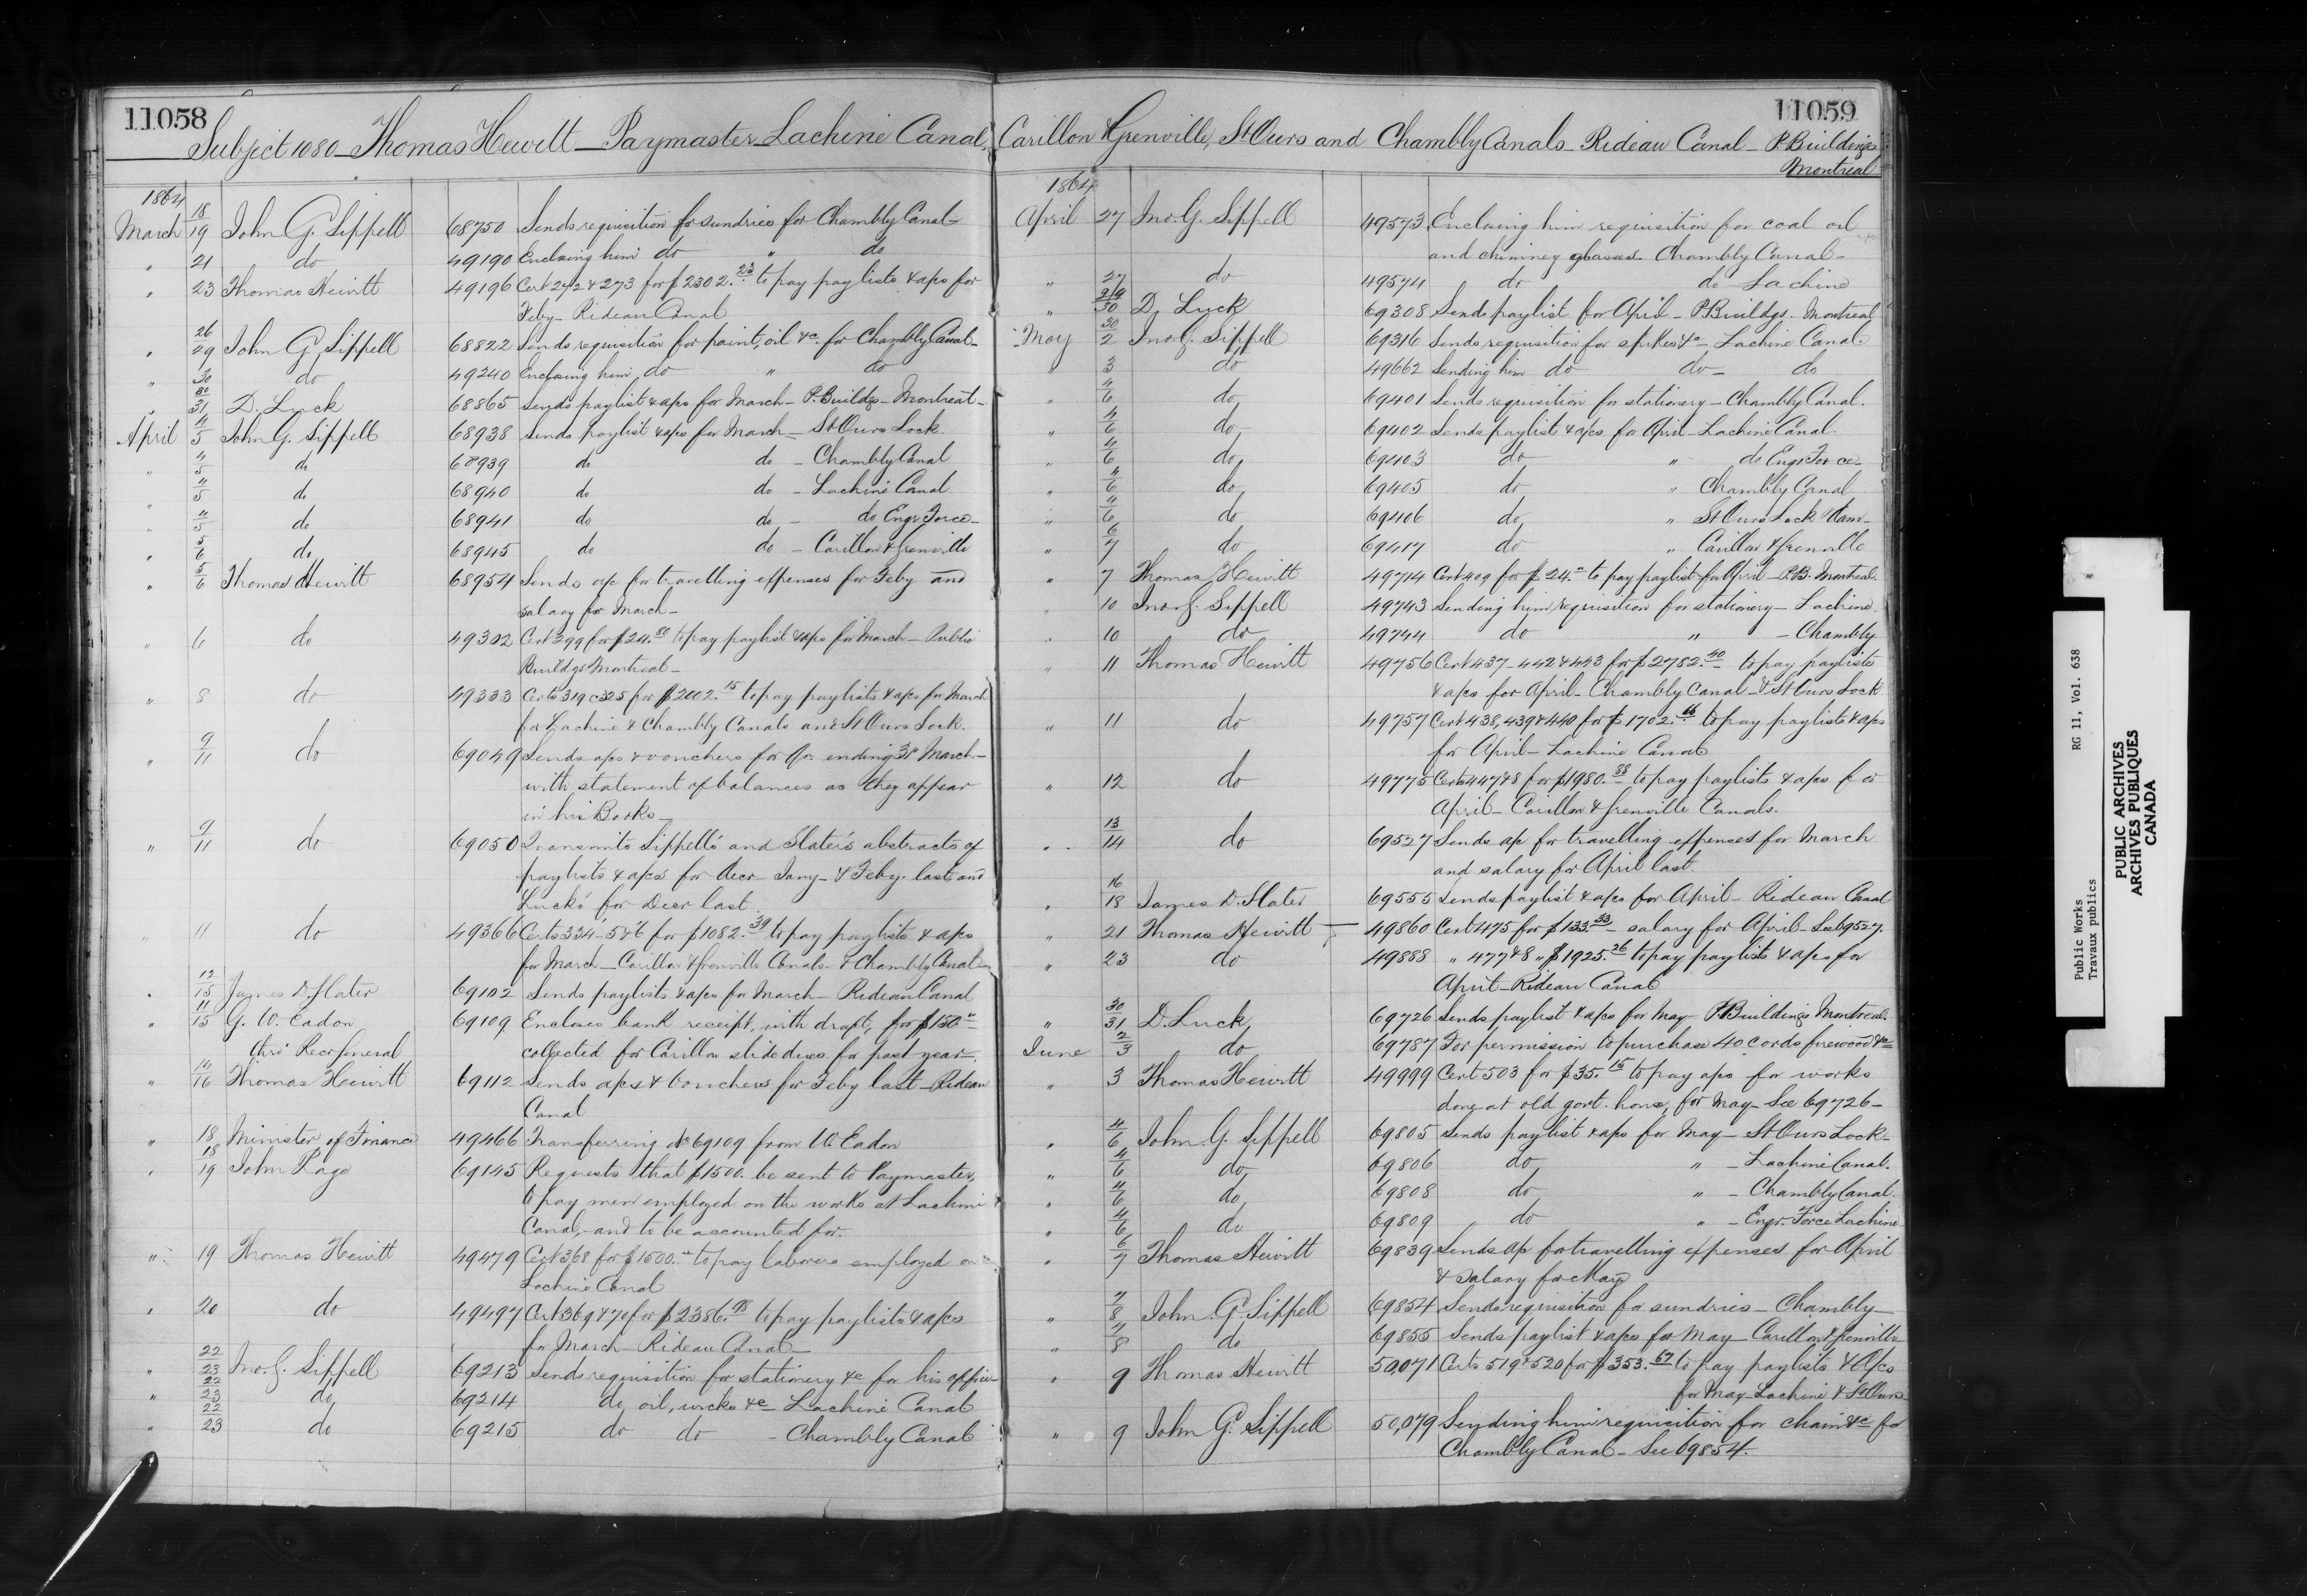 11058
Subject 1080 - Thomas Hewitt - Paymaster Lachine Canal,
1864
March 18/19 John G. Sippell 68750 Sends requisition for sundries for Chambly Canal -
" 21 do 49190 Enclosing him do " do
" 23 Thomas Hewitt 49196 Cert 272 & 273 for $2302.23 to pay paylists & apcs for
Feby - Rideau Canal
" 26/29 John G. Sippell 68822 Sends requisition for paint, oil &c. for Chambly Canal -
" 30 do 49240 Enclosing him do " do
" 30/31 D. Luck 68865 Sends paylist & apcs for March - P. Buildgs - Montreal -
April 4/5 John G. Sippell 68938 Sends paylist & apcs for March - St Ours Lock.
" 4/5 do 68939 do do - Chambly Canal
" 4/5 do 68940 do do - Lachine Canal
" 4/5 do 68941 do do - do Engr Force -
" 5/6 do 68945 do do - Carillon & Grenville
" 5/6 Thomas Hewitt 68954 Sends apc for travelling expenses for Feby and
salary for March -
" 6 do 49302 Cert 299 for $24.80 to pay paylist & apcs for March - Public
Buildgs Montreal -
" 8 do 49333 Certs 319 c 325 for $2002.15 to pay paylists & apcs for March
for Lachine & Chambly Canals and St Ours Lock.
" 9/11 do 69049 Sends apcs & vouchers for Qr. ending 31 March -
with statement of balances as they appear
in his Books -
" 9/11 do 69050 Transmits Sippell's and Slater's abstracts of
paylists & apcs for Decr - Jany - & Feby - last and
Luck's for Decr last
" 11 do 49366 Certs 334 - 5 & 6 for $1082.39 to pay paylists & apcs
for March - Carillon & Grenville Canals - & Chambly Canal -
" 12/15 James D. Slater 69102 Sends paylists & apcs for March - Rideau Canal
" 11/15 G. W. Eadon 69109 Encloses bank receipt, with draft, for $150"
thro' Recr General collected for Carillon slide dues for past year -
" 14/16 Thomas Hewitt 69112 Sends apcs & Vouchers for Feby last - Rideau
Canal
" 18 Minister of Finance 49466 Transferring No 69109 from W. Eadon
" 18/19 John Page 69145 Requests that $1500. be sent to Paymaster,
to pay men employed on the works at Lachine
Canal, - and to be accounted for.
" 19 Thomas Hewitt 49479 Cert 368 for $1500." to pay laborers employed on
Lachine Canal
" 20 do 49497 Cert 369 & 70 for $2386.98 to pay paylists & apcs
for March - Rideau Canal -
" 22/23 Jno. G. Sippell 69213 Sends requisition for stationery &c for his office
" 22/23 do 69214 do, oil, wicks &c - Lachine Canal
" 22/23 do 69215 do do - Chambly Canal
11059
Carillon & Grenville, St Ours and Chambly Canals - Rideau Canal - P. Buildings
Montreal
1864
April 27 Jno. G. Sippell 49573 Enclosing him requisition for coal oil
and chimney glasses - Chambly Canal -
" 27 do 49574 do do - Lachine
" 29/30 D. Luck 69308 Sends paylist for April - P. Buildgs. Montreal
May 30/2 Jno. G. Sippell 69316 Sends requisition for spikes &c - Lachine Canal.
" 3 do 49662 Sending him do do - do
" 4/6 do 69401 Sends requisition for stationery - Chambly Canal.
" 4/6 do 69402 Sends paylist & apcs for April - Lachine Canal.
" 4/6 do 69403 do " do Engr Force -
" 4/6 do 69405 do " Chambly Canal
" 4/6 do 69406 do " St Ours Lock & Dam -
" 6/7 do 69417 do " Carillon & Grenville
" 7 Thomas Hewitt 49714 Cert 409 for $24." to pay paylist for April - P.B. Montreal.
" 10 Jno. G. Sippell 49743 Sending him requisition for stationery - Lachine
" 10 do 49744 do " - Chambly
" 11 Thomas Hewitt 49756 Cert 437 - 442 & 443 for $2782.40 to pay paylists
& apcs for April - Chambly Canal - & St Ours Lock
" 11 do 49757 Cert 438, 439 & 440 for $1702.66 to pay paylists & apcs
for April - Lachine Canal
" 12 do 49775 Certs 447 & 8 for $1980.88 to pay paylists & apcs for
April - Carillon & Grenville Canals.
" 13/14 do 69527 Sends apc for travelling expenses for March
and salary for April last.
" 16/18 James D. Slater 69555 Sends paylist & apcs for April - Rideau Canal
" 21 Thomas Hewitt 49860 Cert 475 for $133.33 - salary for April - See 69527.
" 23 do 49888 " 477 & 8 " $1925.26 to pay paylists & apcs for
April - Rideau Canal
" 30/31 D. Luck 69726 Sends paylist & apcs for May P. Buildings Montreal.
June 2/3 do 69787 For permission to purchase 40 cords firewood &c
" 3 Thomas Hewitt 49999 Cert 503 for $35.15 to pay apcs for works
done at old govt. house, for May - See 69726 -
" 4/6 John G. Sippell 69805 Sends paylist & apcs for May - St Ours Lock -
" 4/6 do 69806 do " - Lachine Canal.
" 4/6 do 69808 do " - Chambly Canal.
" 4/6 do 69809 do " - Engr. Force Lachine
" 6/7 Thomas Hewitt 69839 Sends apc for travelling expenses for April
& salary for May
" 7/8 John G. Sippell 69854 Sends requisition for sundries - Chambly -
" 7/8 do 69855 Sends paylist & apcs for May - Carillon & Grenville
" 9 Thomas Hewitt 50,071 Certs 519 & 520 for $353.67 to pay paylists & apcs
for May Lachine & St Ours
" 9 John G. Sippell 50,079 Sending him requisition for chain &c for
Chambly Canal - See 69854.
Public Works RG 11, Vol. 638
Travaux publics
PUBLIC ARCHIVES
ARCHIVES PUBLIQUES
CANADA